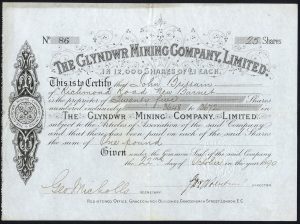 No 86 25 Shares
THE GLYNDWR MINING COMPANY, LIMITED.
IN 12,000 SHARES OF £1 EACH.
This is to Certify that John Bussam
of Richmond Road New Barnet
is the proprietor of Twenty five Shares
numbered inclusively to
THE GLYNDWR MINING COMPANY, LIMITED.
subject to the Articles of Association of the said Company
and that there has been paid on each of the said Shares
the sum of One Pound
Given under the Common Seal of the said Company
the 22nd day of October in the year 1890
Geo. Nicholls SECRETARY DIRECTOR
REGISTERED OFFICE, GRACECHURCH BUILDINGS, GRACECHURCH STREET, LONDON, E.C.